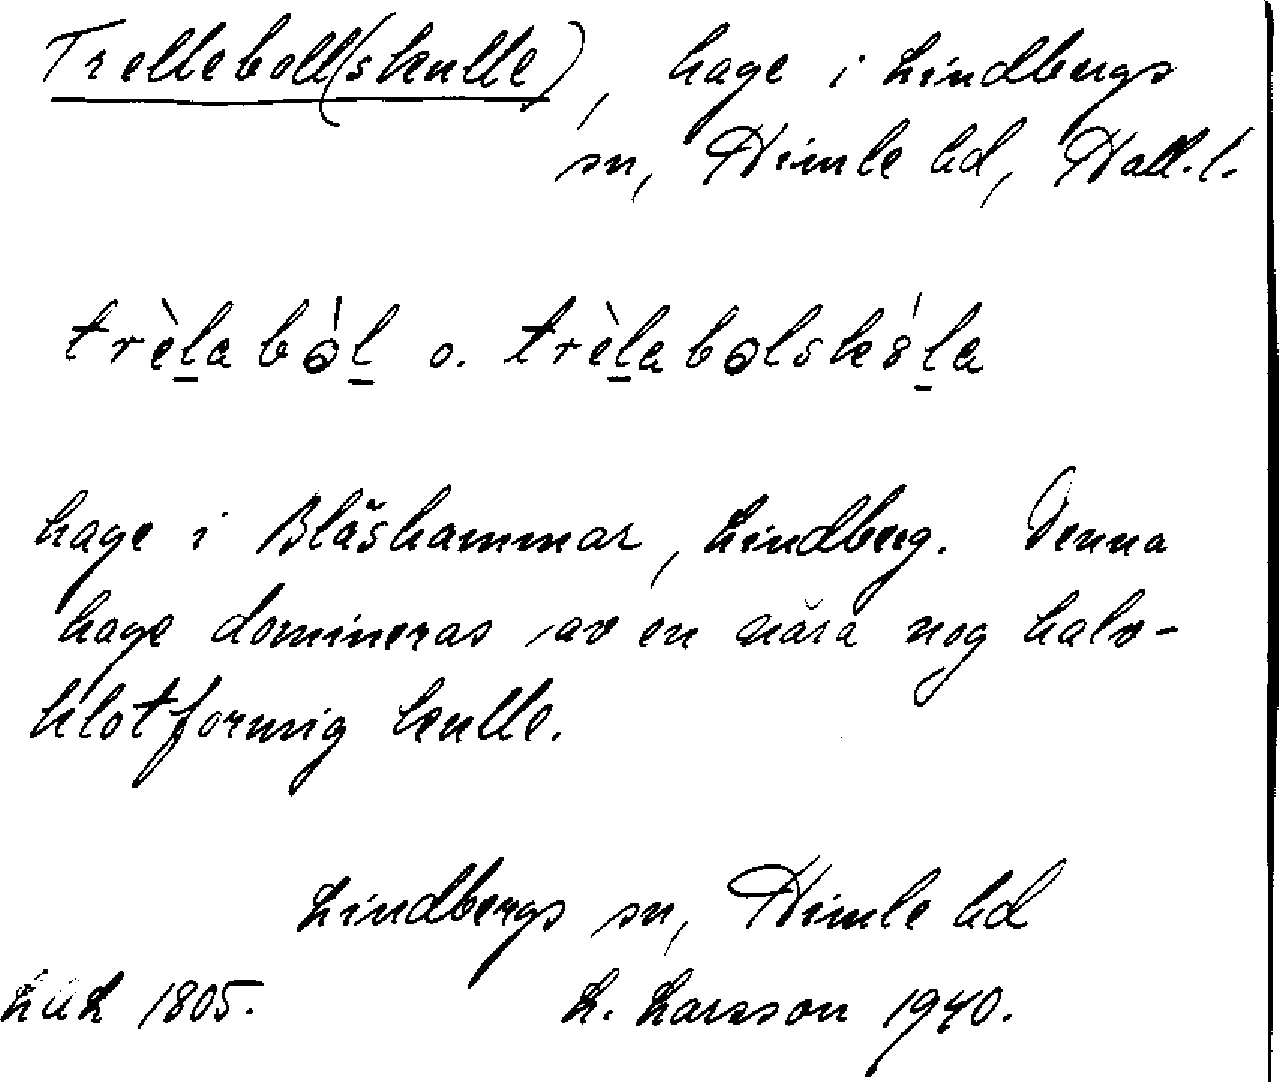 Trelleboll(skulle), hage i Lindbergs
sn, Himle hd, Hall. l.
trèlabòl o. trèlabolskòla
hage i Blåshammar, Lindberg. Denna
hage domineras av en nära nog halv-
klotformig kulle.
Lindbergs sn, Himle hd
LUL 1805. L. Larsson 1940.